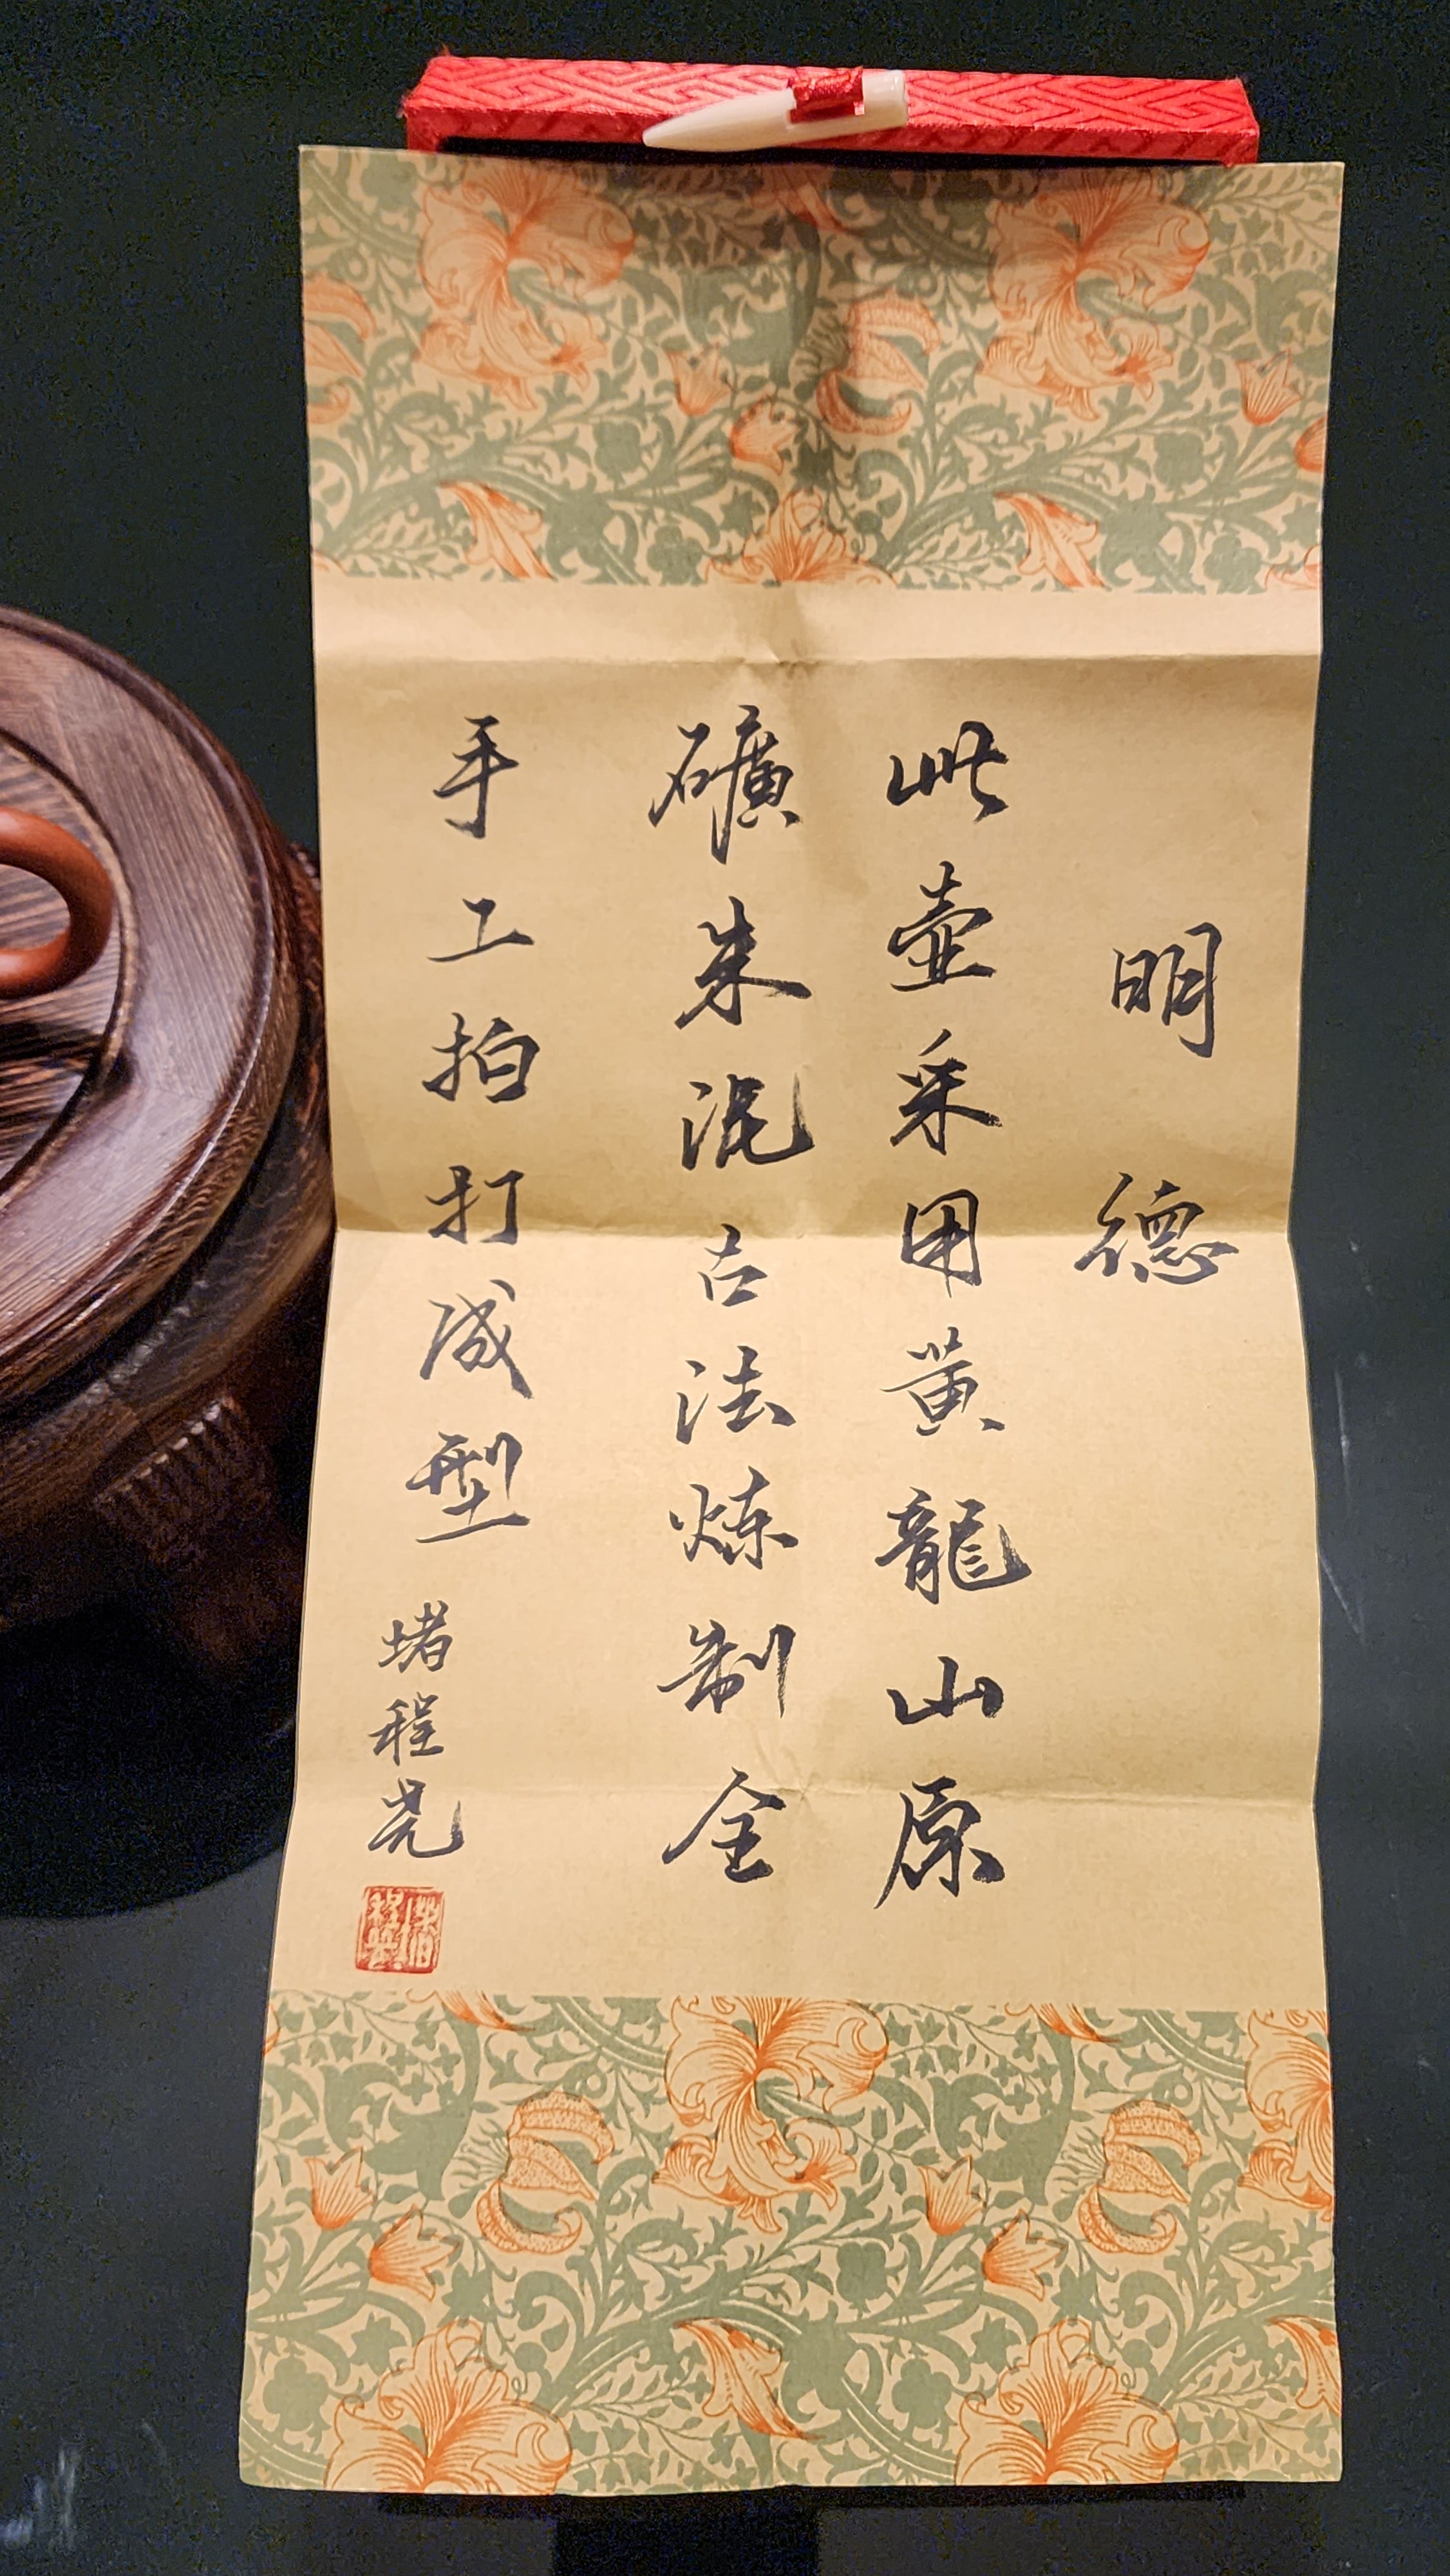 明德
此壺采用黃龍山原
礦朱泥古法炼制全
手工拍打成型
堵程尧